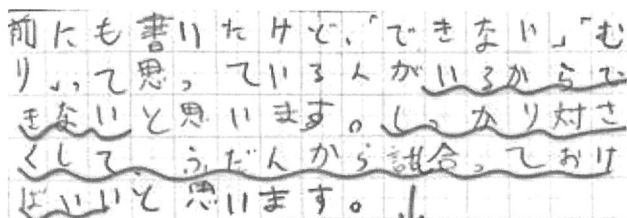 前にも書いたけど、「できない」「む
り」って思っている人がいるからで
きないと思います。しっかり対さ
くして、ふだんから話合っておけ
ばいいと思います。